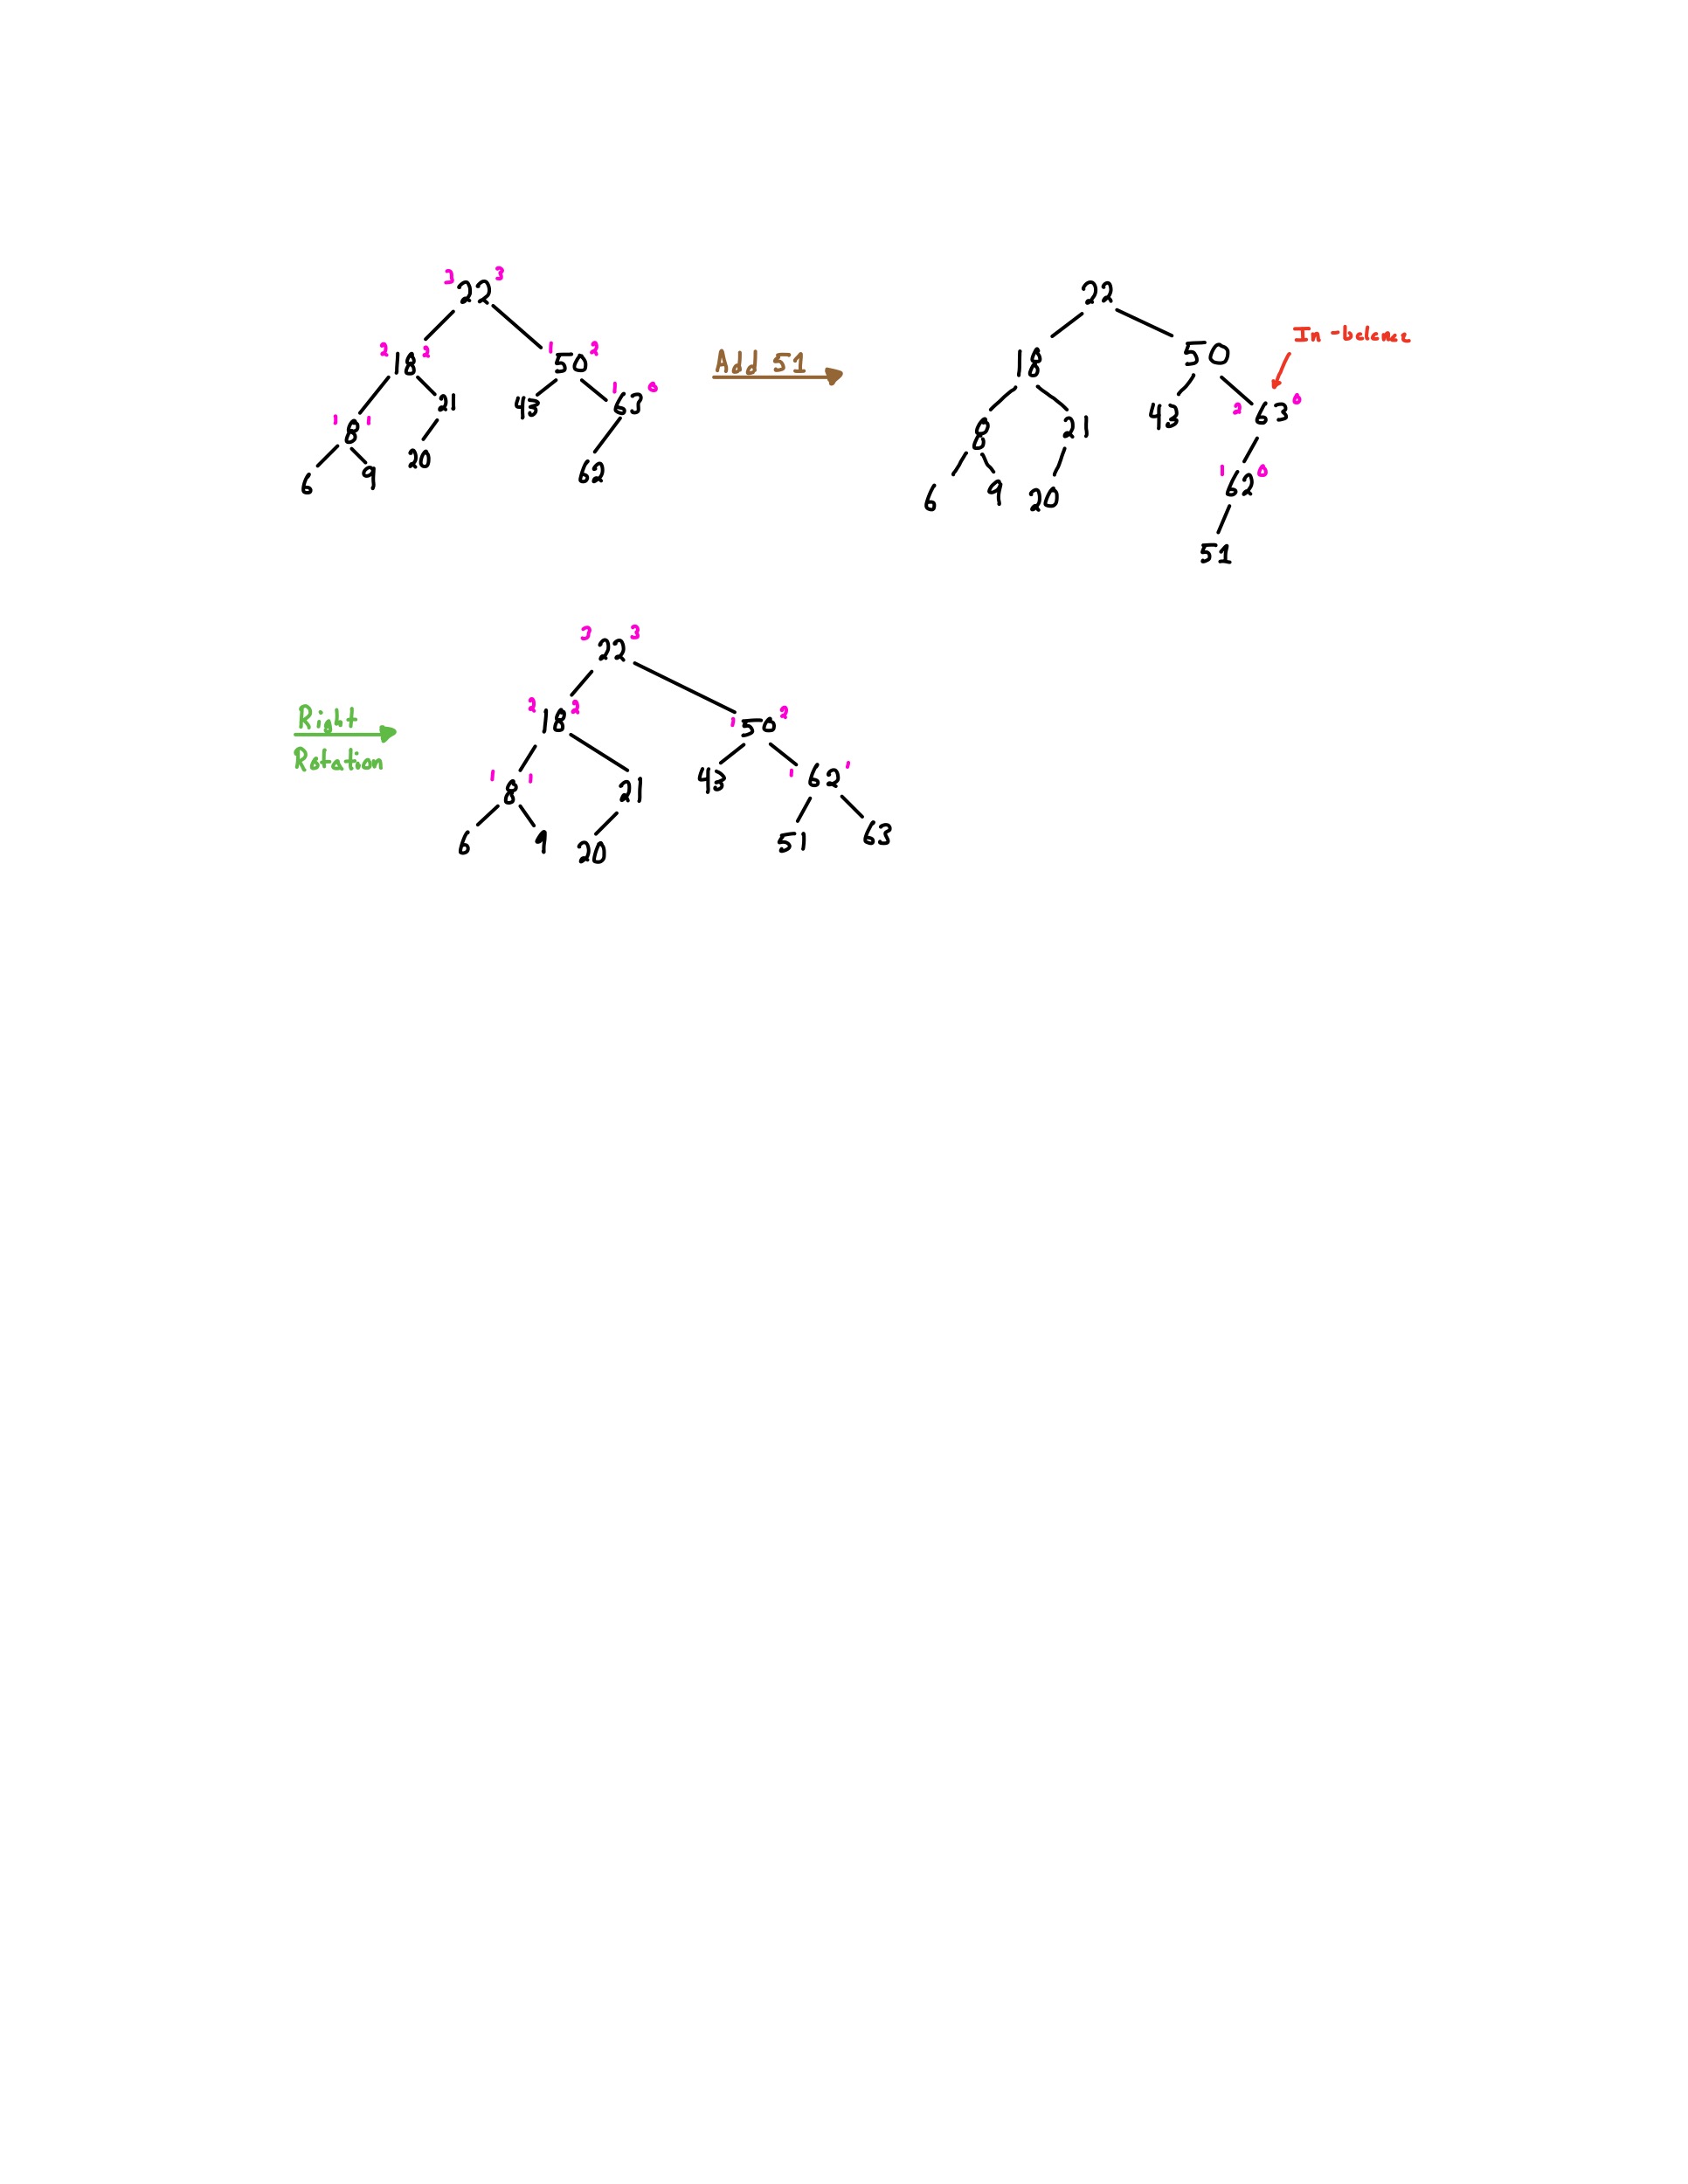 3 22 3
2 18 2 1 50 2
1 8 1 21 43 1 63 0
6 9 20 62
Add 51
22
18 50
In-balance
8 21 43 2 63 0
6 9 20 1 62 0
51
Right
Rotation
3 22 3
2 18 2 1 50 2
1 8 1 21 43 1 62 1
6 9 20 51 63